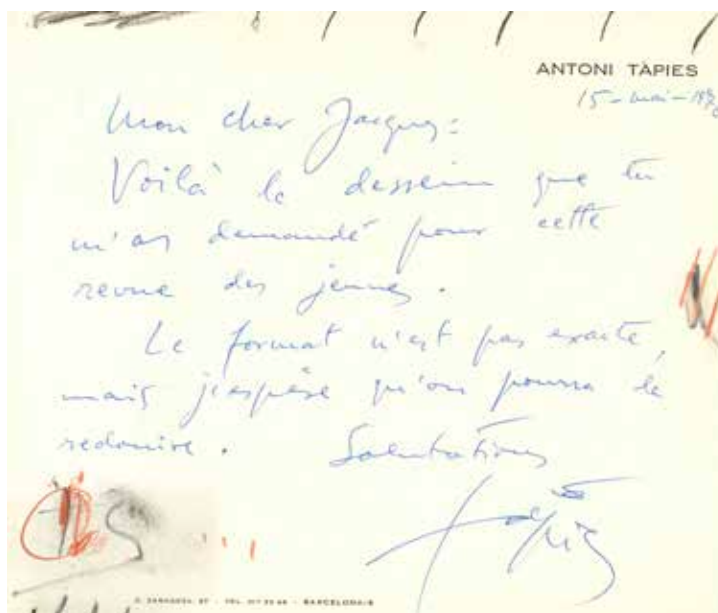 ANTONI TÀPIES
15-mai-
Mon cher Jacques:
Voilà le dessein que tu
m'as demandé pour cette
revue des jeunes.
Le format n'est pas exacte,
mais j'espère qu'on pourra le
redouire. Salutations
Tàpies
C. ZARAGOZA, 57 - TEL. - BARCELONA-6